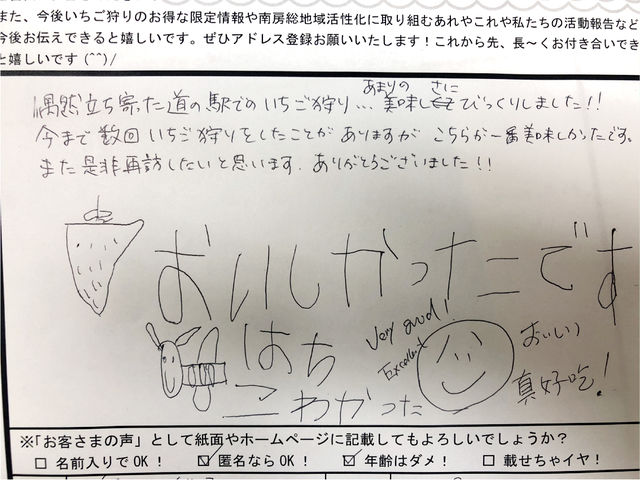 また、今後いちご狩りのお得な限定情報や南房総地域活性化に取り組むあれやこれや私たちの活動報告など
今後お伝えできると嬉しいです。ぜひアドレス登録お願いいたします！これから先、長～くお付き合いでき
と嬉しいです(^^)/
偶然立ち寄った道の駅でのいちご狩り…あまりの美味しさにびっくりしました!!
今まで数回いちご狩りをしたことがありますが こちらが一番美味しかったです。
また是非再訪したいと思います。ありがとうございました!!
おいしかったです
はち
こわかった
Very good!
Excellent
おいしい
真好吃!
※「お客さまの声」として紙面やホームページに記載してもよろしいでしょうか？
□ 名前入りでOK！ ☑ 匿名ならOK！ ☑ 年齢はダメ！ □ 載せちゃイヤ！